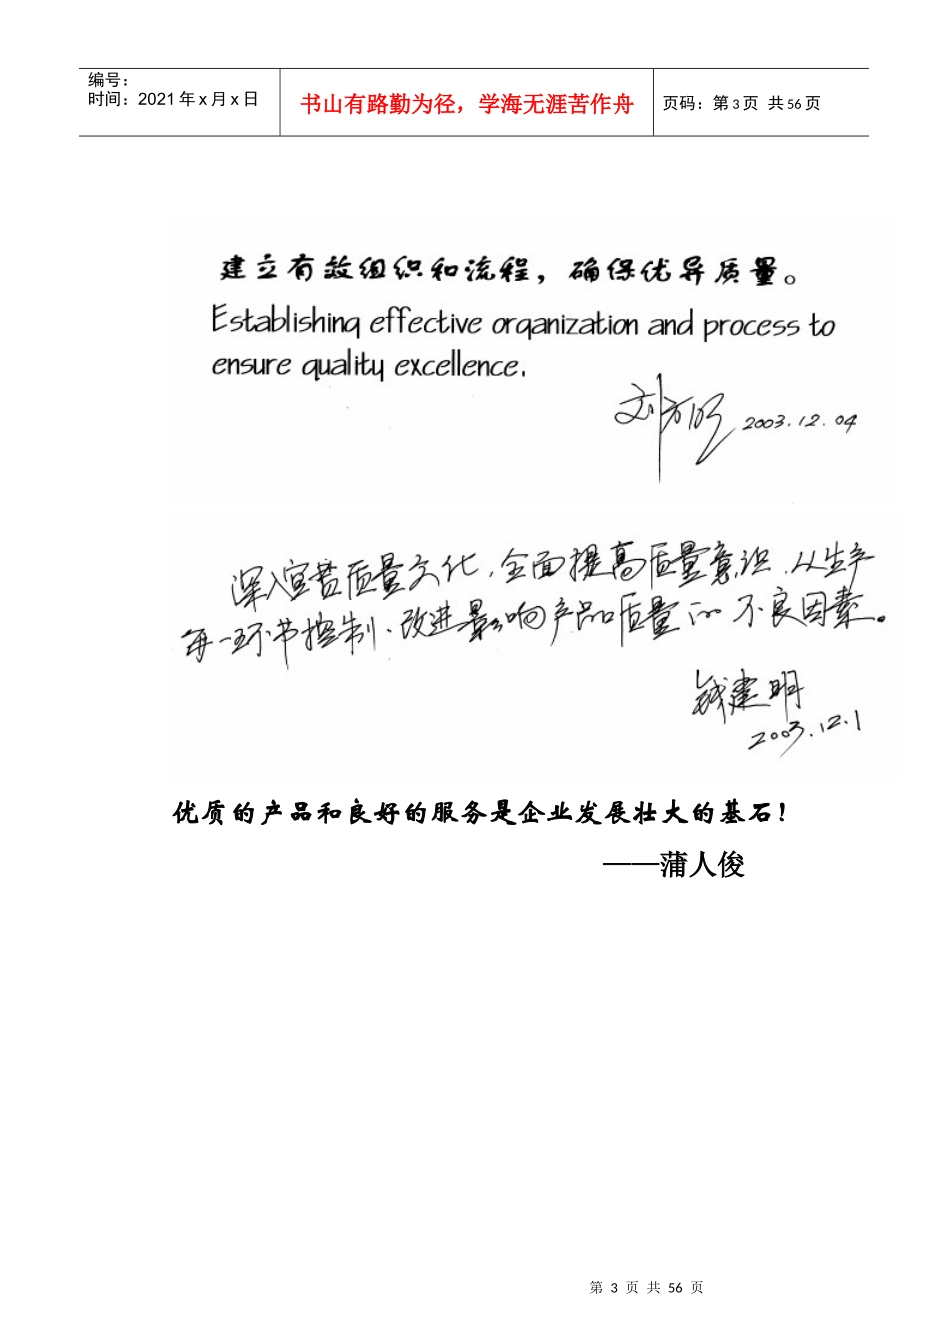 编号：
时间：2021年x月x日
书山有路勤为径，学海无涯苦作舟
页码：第3页 共56页
建立有效组织和流程，确保优异质量。
Establishing effective organization and process to
ensure quality excellence.
刘方明 2003.12.04
深入宣贯质量文化，全面提高质量意识，从生产
每一环节控制、改进影响产品质量的不良因素。
钱建明
2003.12.1
优质的产品和良好的服务是企业发展壮大的基石！
——蒲人俊
第 3 页 共 56 页